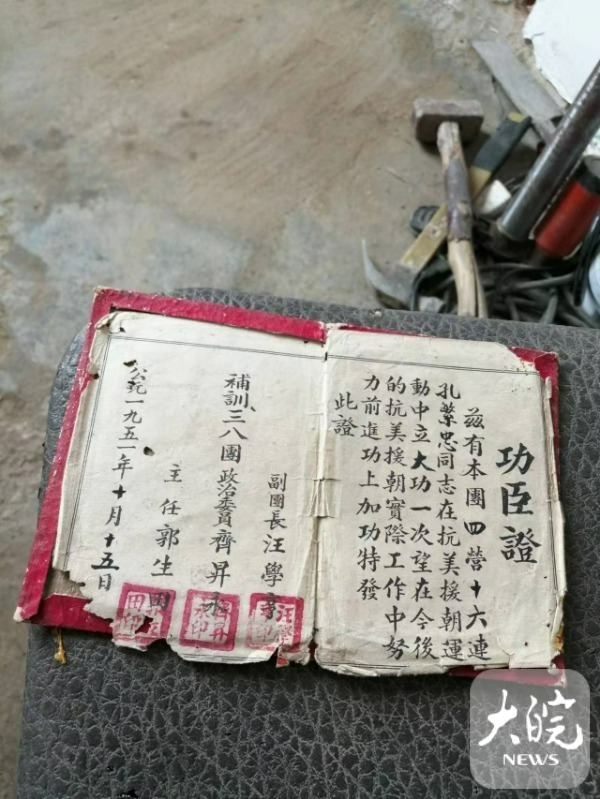 功臣證
茲有本團四營十六連
孔繁忠同志在抗美援朝運
動中立大功一次望在今後
的抗美援朝實際工作中努
力前進功上加功特發
此證
副團長汪學
補訓三八團政治委員齊昇
主任郭生田
公元一九五一年十月十五日
大皖
NEWS